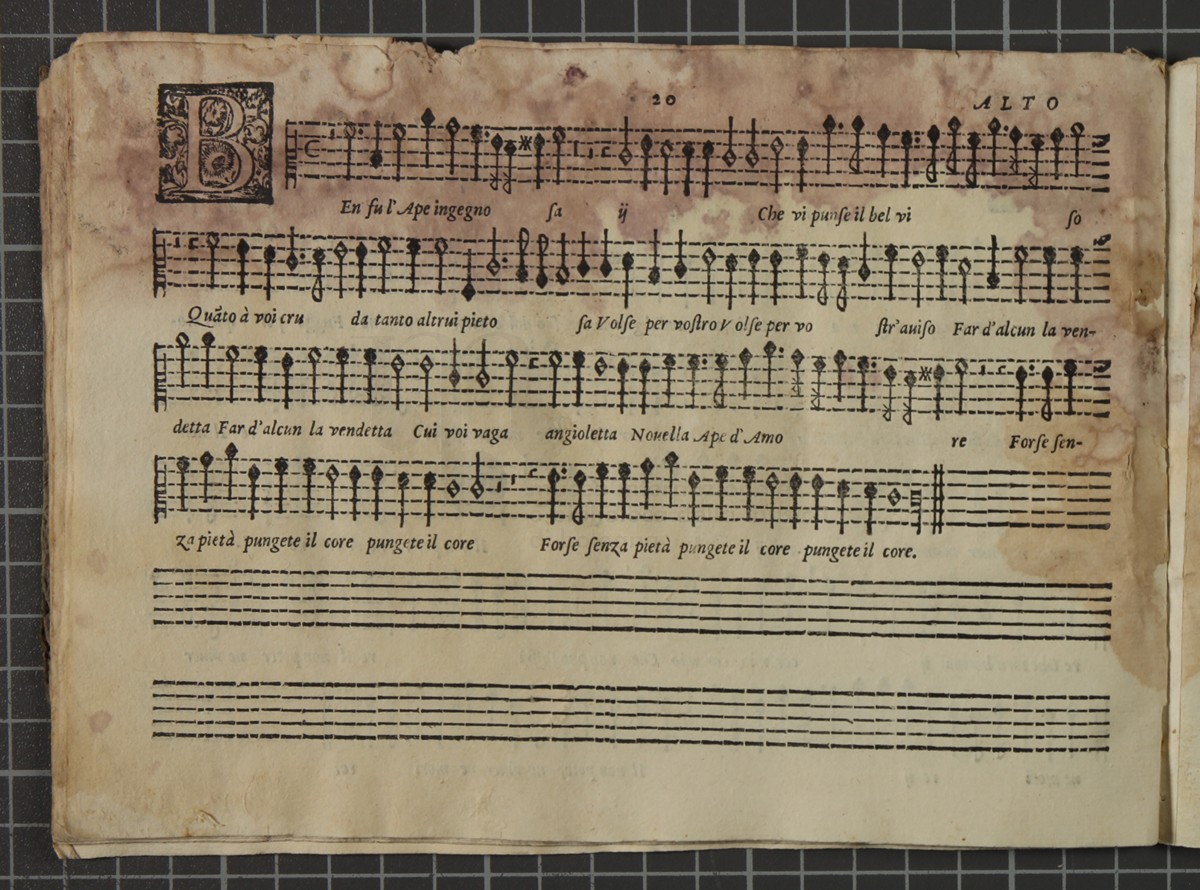 20 ALTO
BEn fu l'Ape ingegno ſa ij Che vi punſe il bel vi ſo
Quãto à voi cru da tanto altrui pieto ſa Volſe per voſtro Volſe per vo ſtr'auiſo Far d'alcun la ven-
detta Far d'alcun la vendetta Cui voi vaga angioletta Nouella Ape d'Amo re Forſe ſen-
za pietà pungete il core pungete il core Forſe ſenza pietà pungete il core pungete il core.